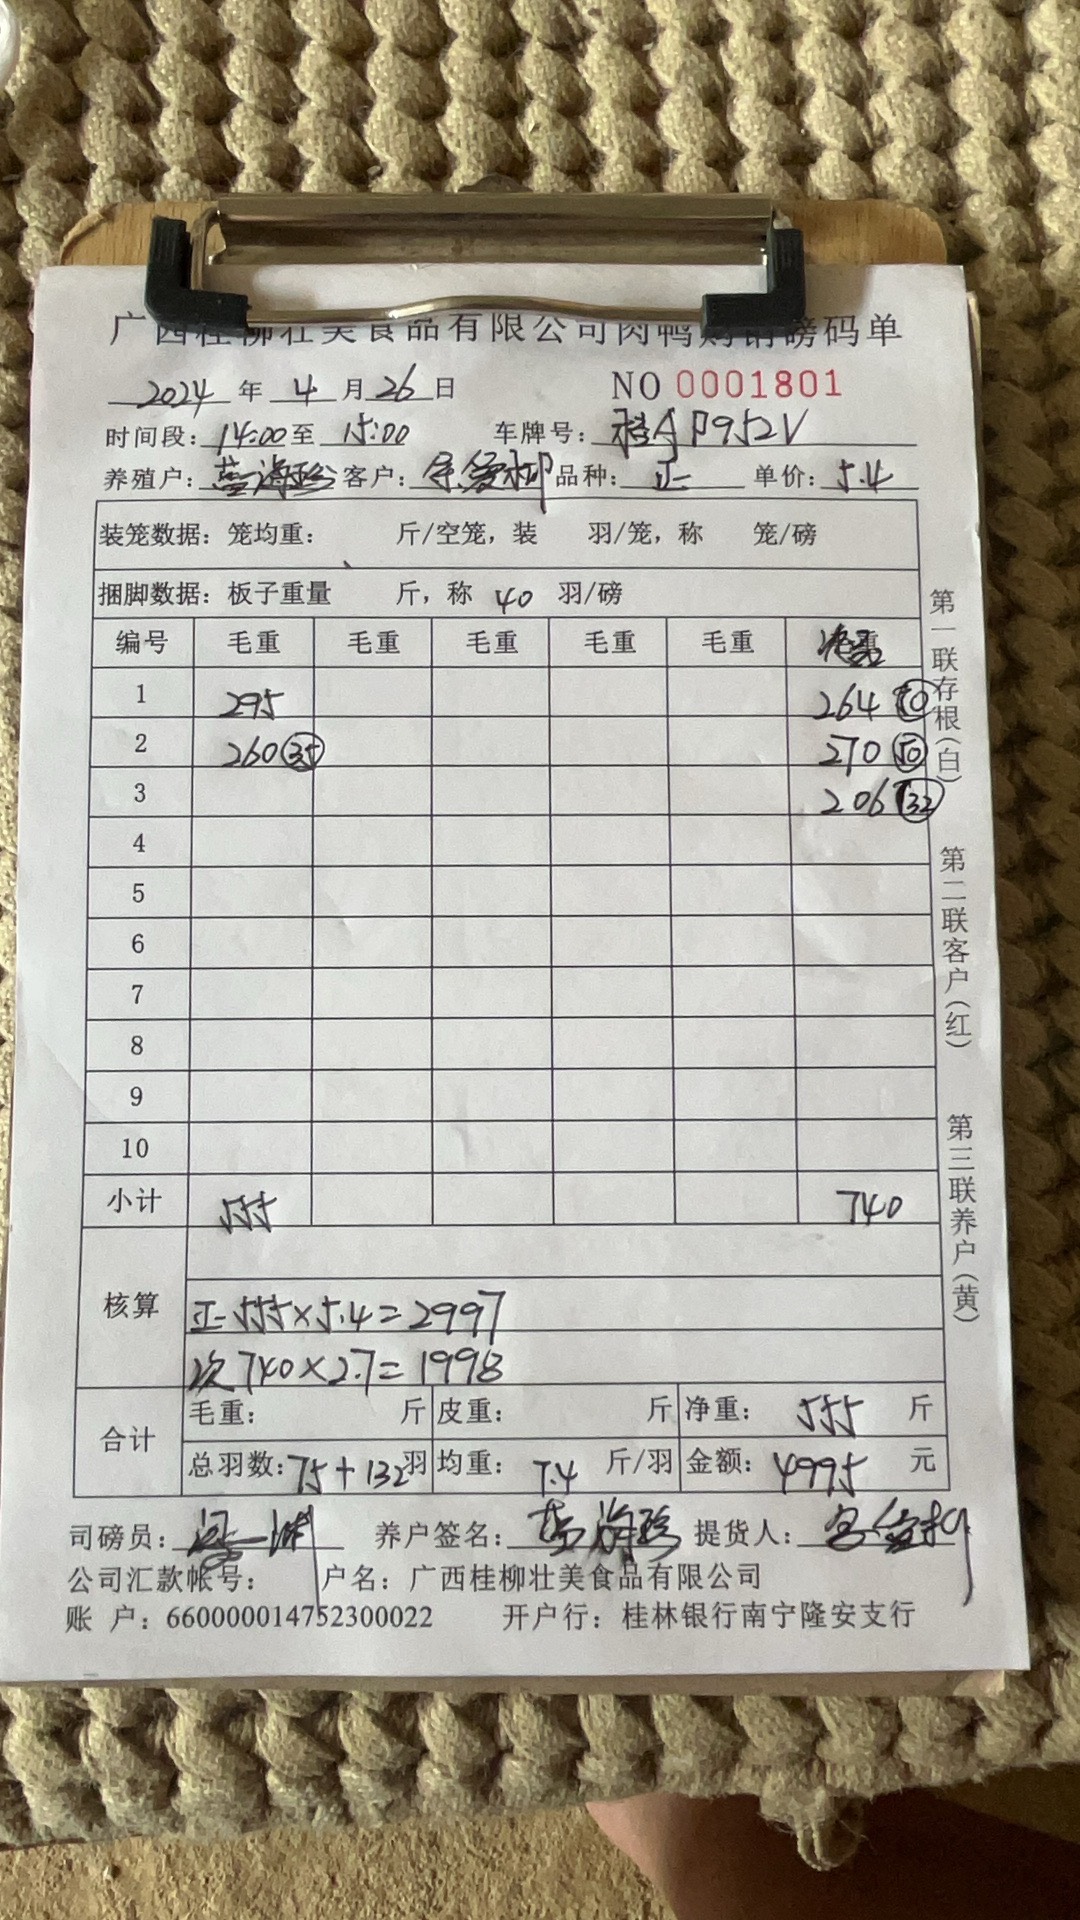 广西桂柳壮美食品有限公司肉鸭购销磅码单
2024年4月26日 NO 0001801
时间段:14:00至15:00 车牌号:P952V
养殖户: 客户: 品种:正 单价:5.4
装笼数据:笼均重: 斤/空笼,装 羽/笼,称 笼/磅
捆脚数据:板子重量 斤,称 40 羽/磅
编号 毛重 毛重 毛重 毛重 毛重
1 295 264 50
2 260 35 270 50
3 206 32
4
5
6
7
8
9
10
小计 555 740
核算
正 555×5.4=2997
次 740×2.7=1998
合计 毛重: 斤 皮重: 斤 净重: 555 斤
总羽数:75+132羽 均重: 7.4 斤/羽 金额: 4995 元
司磅员: 养户签名: 提货人:
公司汇款帐号: 户名:广西桂柳壮美食品有限公司
账 户:660000014752300022 开户行:桂林银行南宁隆安支行
第一联存根(白)
第二联客户(红)
第三联养户(黄)